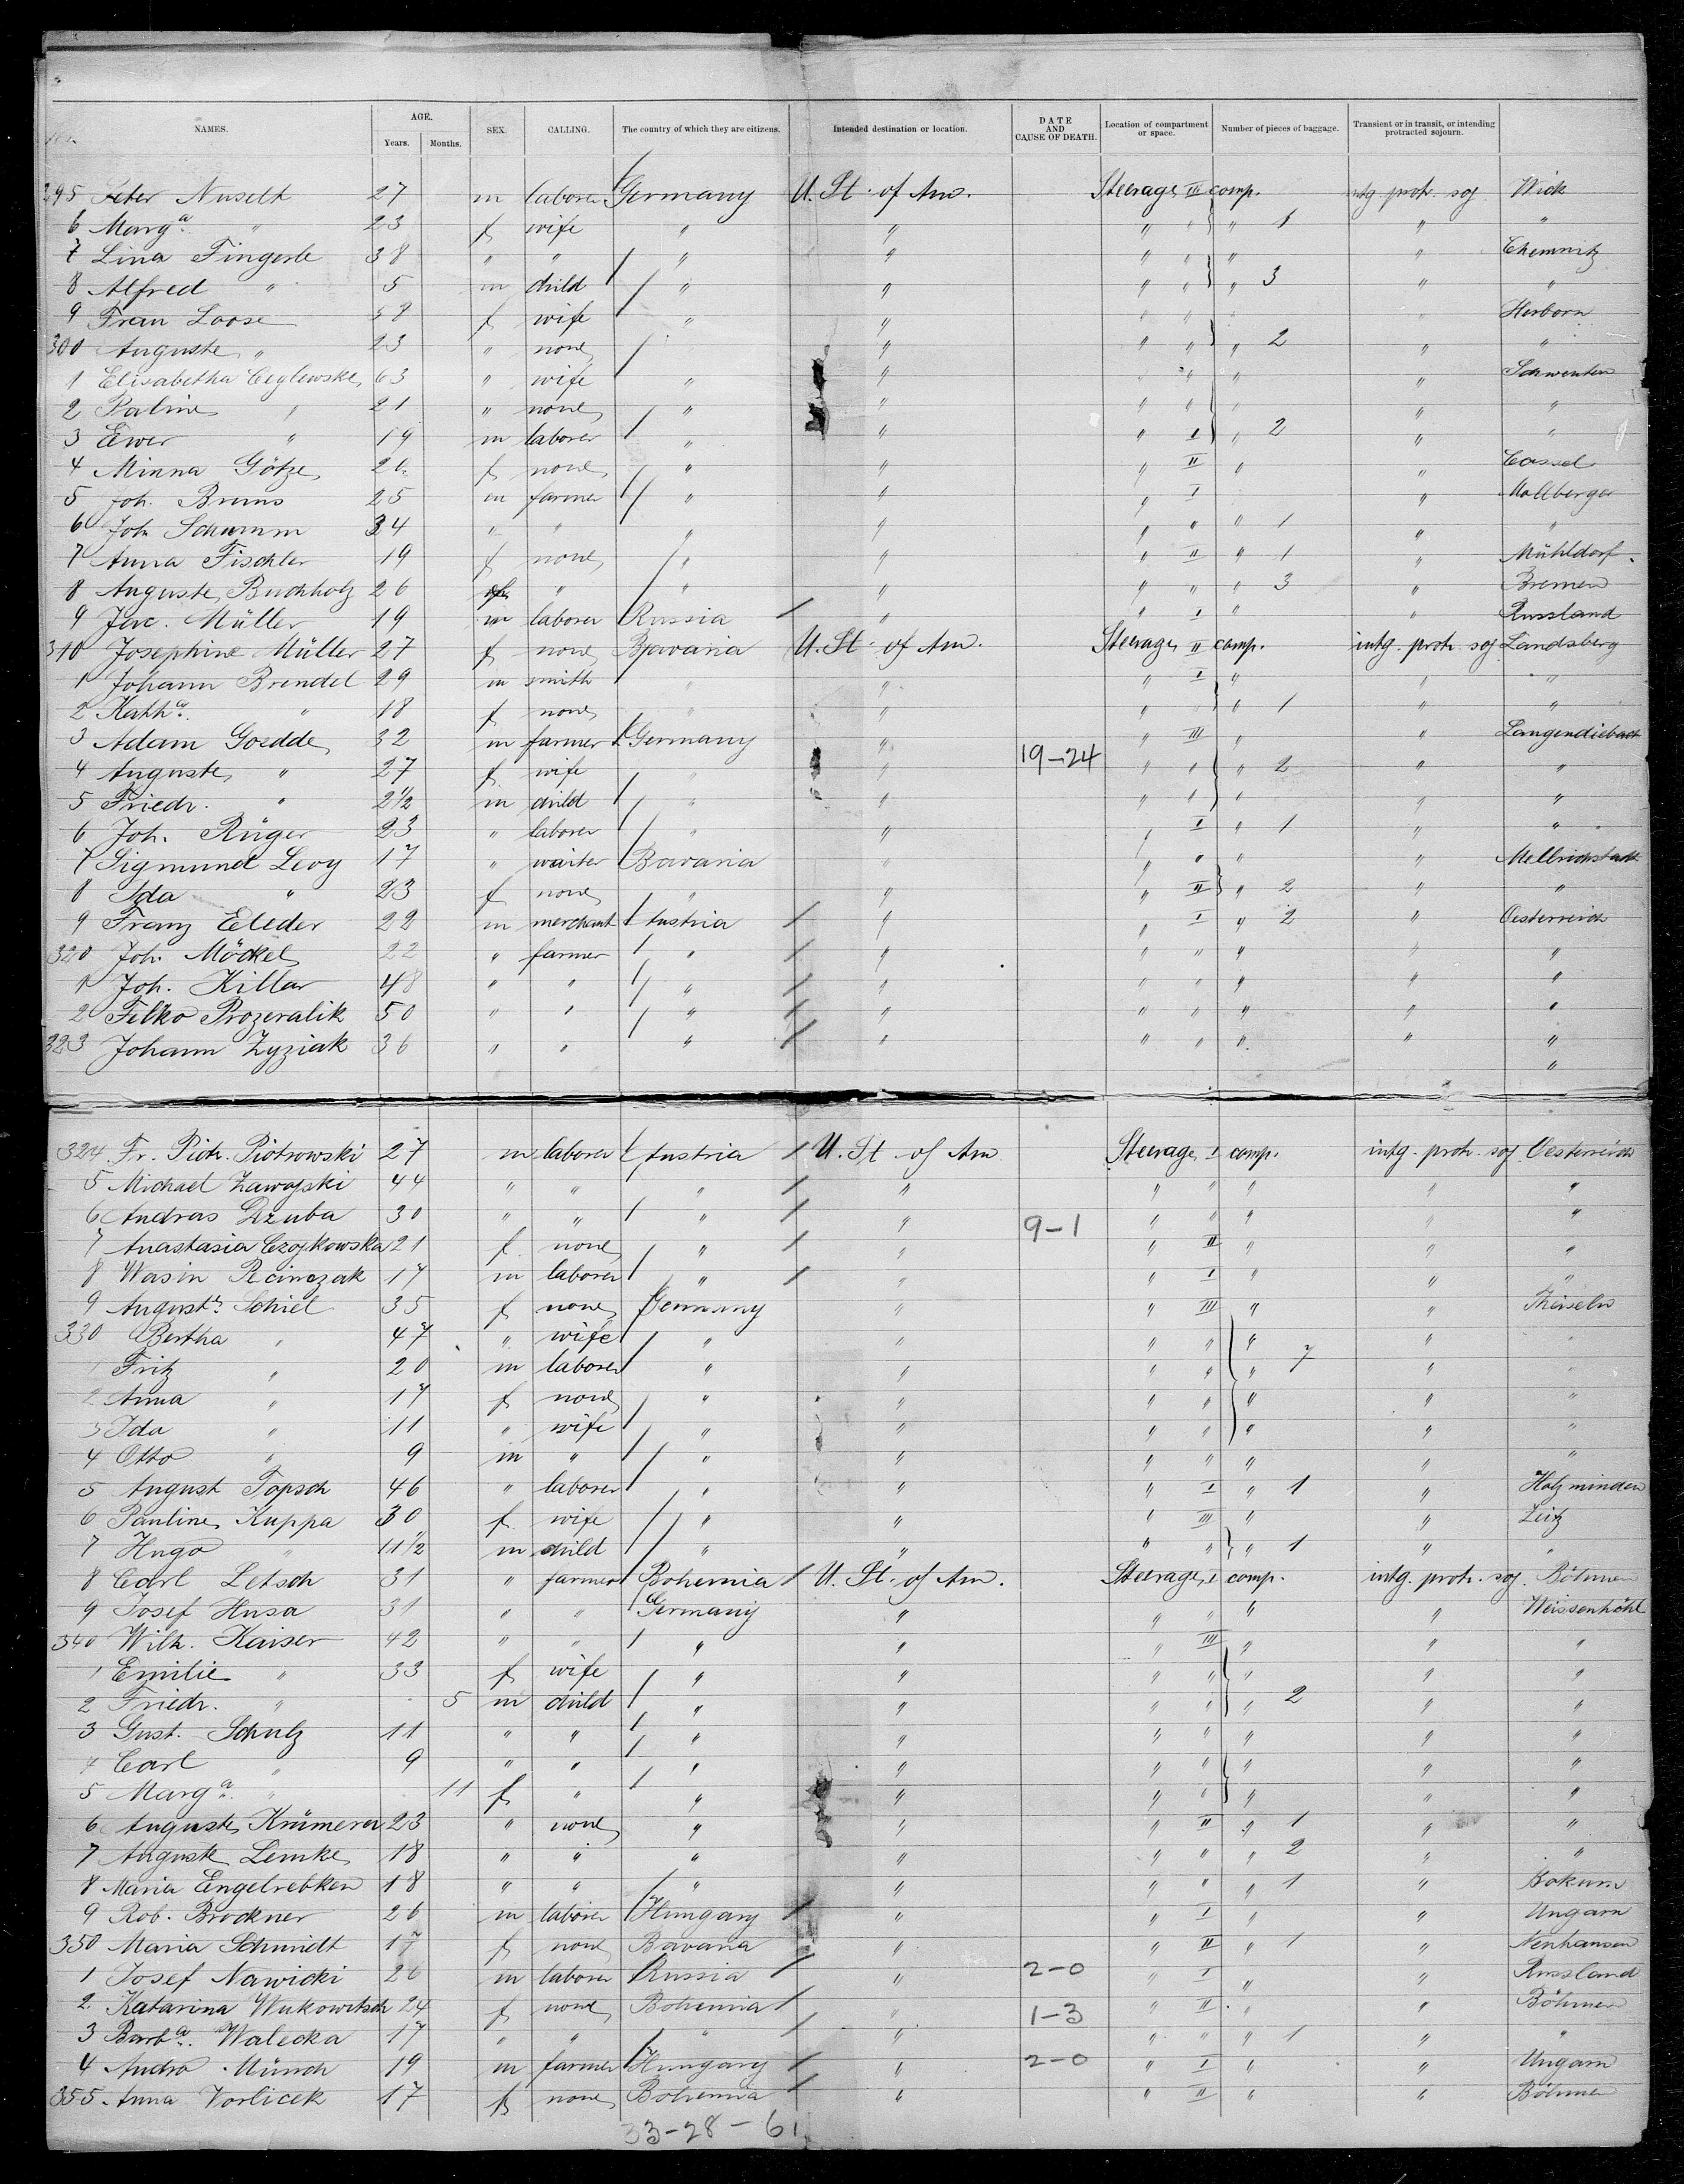 NAMES. AGE. Years. Months. SEX. CALLING. The country of which they are citizens. Intended destination or location. DATE AND CAUSE OF DEATH. Location of compartment or space. Number of pieces of baggage. Transient or in transit, or intending protracted sojourn.
295 Peter Nuselt 27 m laborer Germany U. St. of Am. Steerage III comp. intg. protr. soj Wick
6 Marga " 23 f wife " " " " " 1 " "
7 Lina Fingerle 38 " " " " " " " " Chemnitz
8 Alfred " 5 m child " " " " " 3 " "
9 Frau Loose f wife " " " " " " Herborn
300 Auguste " 23 " none " " " " 2 " "
1 Elisabetha Ceglewske 63 " wife " " " " " " Schwenten
2 Paline " 21 " none " " " " " " "
3 Ewer " 19 m laborer " " " I " 2 " "
4 Minna Götze 20 f none " " " II " " Cassel
5 Joh. Bruns 25 m farmer " " " I " Mollberger
6 Joh Schumm 34 " " " " " " " 1 " "
7 Anna Fischler 19 f none " " " II " 1 " Mühldorf.
8 Auguste Buchholz 26 f " " " " " " 3 " Bremen
9 Jac. Müller 19 m laborer Russia " " I " " Russland
310 Josephine Müller 27 f none Bavaria U. St. of Am. Steerage II comp. intg. protr. soj Landsberg
1 Johann Brendel 29 m smith " " " I " " "
2 Katha. " 18 f none " " " " " 1 " "
3 Adam Goedde 32 m farmer Germany " " III " " Langendiebach
4 Auguste " 27 f wife " " 19-24 " " " 2 " "
5 Friedr. " 2 1/2 m child " " " " " " "
6 Joh. Rüger 23 " laborer " " " I " 1 " "
7 Sigmund Levy 17 " waiter Bavaria " " " " " Mellrichstadt
8 Ida " 23 f none " " " II " 2 " "
9 Franz Eleder 22 m merchant Austria " " I " 2 " Oesterreich
320 Joh. Möckel 22 " farmer " " " " " " "
1 Joh. Killar 48 " " " " " " " " "
2 Felko Prozeralik 50 " " " " " " " " "
323 Johann Zyziak 36 " " " " " " " " "
"
324 Fr. Piotr. Piotrowski 27 m laborer Austria U. St. of Am Steerage I comp. intg. protr. soj Oesterreich
5 Michael Zawojski 44 " " " " " " " " "
6 Andras Dzuba 30 " " " " 9-1 " " " " "
7 Anastasia Czojkowska 21 f none " " " II " " "
8 Wasin 17 m laborer " " " I " " "
9 Auguste Schiel 35 f none Germany " " III " "
330 Bertha " 47 " wife " " " " " " "
1 Fritz " 20 m laborer " " " " " 7 " "
2 Anna " 17 f none " " " " " " "
3 Ida " 11 " wife " " " " " " "
4 Otto " 9 m " " " " " " " "
5 August Topsch 46 " laborer " " " I " 1 " Holzminden
6 Pauline Kuppa 30 f wife " " " III " " Zeitz
7 Hugo " 11 1/2 m child " " " " " 1 " "
8 Carl Letsch 31 " farmer Bohemia U. St. of Am. Steerage I comp. intg. protr. soj. Böhmen
9 Josef Husa 31 " " Germany " " " " " Weissenhöhl
340 Wilh. Kaiser 42 " " " " " III " " "
1 Emilie " 33 f wife " " " " " " "
2 Friedr. " 5 m child " " " " " 2 " "
3 Gust. Schulz 11 " " " " " " " " "
4 Carl " 9 " " " " " " " " "
5 Marga. " 11 f " " " " " " " "
6 Auguste Krümerer 23 " none " " " II " 1 " "
7 Auguste Lemke 18 " " " " " " " 2 " "
8 Maria Engelrebken 18 " " " " " " " 1 " Bokum
9 Rob. Brockner 26 m laborer Hungary " " I " " Ungarn
350 Maria Schmidt 17 f none Bavaria " " II " 1 " Neuhausen
1 Josef Nawicki 26 m laborer Russia " 2-0 " I " " Russland
2 Katarina Wukowitsch 24 f none Bohemia " 1-3 " II " " Böhmen
3 Barba. Walecka 17 " " " " " " " 1 " "
4 Andro Münch 19 m farmer Hungary " 2-0 " I " " Ungarn
355. Anna Vorlicek 17 f none Bohemia " " II " " Böhmen
33-28-61